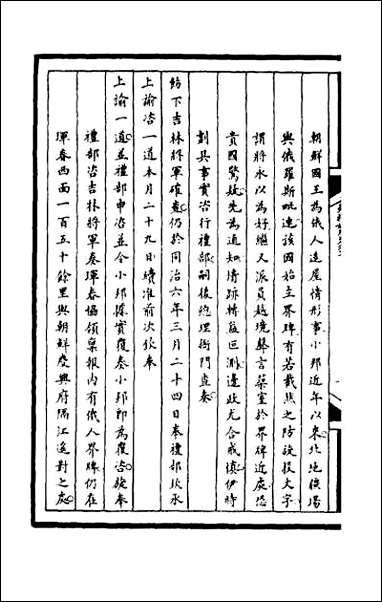 朝鮮國王為俄人造屋情形事小邦近年以來北地僕場
與俄羅斯毗連該國始立界牌有若截然之防旋投文字
謂將永以為好繼又派員越境聲言築室於界牌近處恐
貴國驚疑先為通知情跡情益叵測邊政尤合戒慎伊時
劃具事實咨行禮部嗣後總理衙門查奏
飭下吉林將軍確查仍於同治六年三月二十四日奉禮部欽承
上諭咨一道本月二十九日續准前次欽奉
上諭一道並禮部申咨並令小邦探實覆奏小邦即為覆咨旋奉
禮部咨吉林將軍奏琿春協領稟報內有俄人界牌仍在
琿春西面一百五十餘里與朝鮮慶興府隔江遙對之處